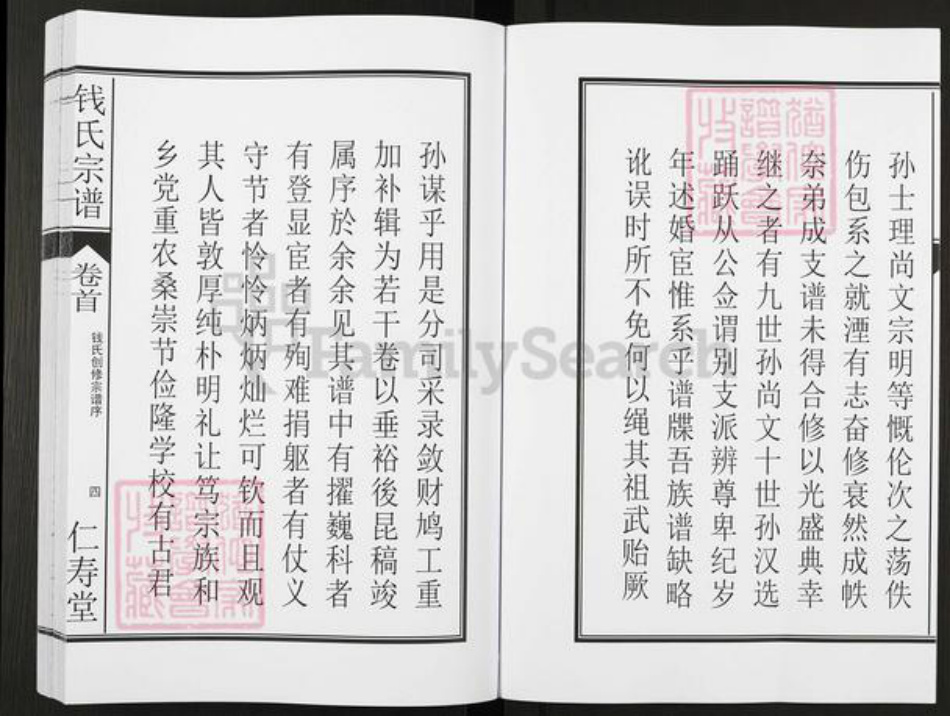 孙士理尚文宗明等慨伦次之荡佚
伤包系之就湮有志奋修裒然成帙
奈弟成支谱未得合修以光盛典幸
继之者有九世孙尚文十世孙汉选
踊跃从公佥谓别支派辨尊卑纪岁
年述婚宦惟系乎谱牒吾族谱缺略
讹误时所不免何以绳其祖武贻厥
孙谋乎用是分司采录敛财鸠工重
加补辑为若干卷以垂裕後昆稿竣
属序於余余见其谱中有擢巍科者
有登显宦者有殉难捐躯者有仗义
守节者怜怜炳炳灿烂可钦而且观
其人皆敦厚纯朴明礼让笃宗族和
乡党重农桑崇节俭隆学校有古君
钱氏宗谱
卷首
钱氏创修宗谱序
四
仁寿堂
FamilySearch